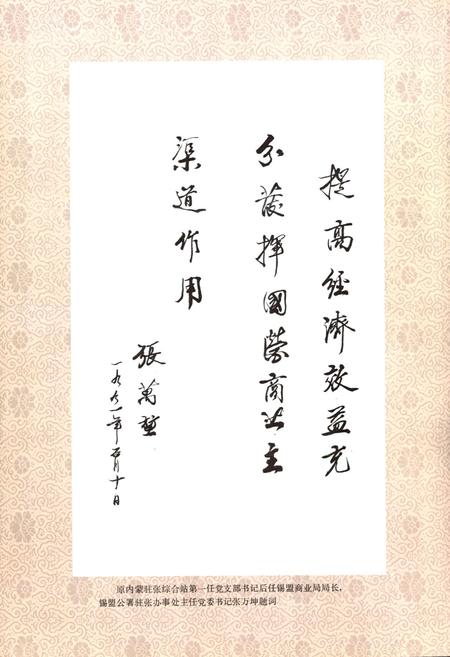 提高经濟效益充
分發揮國营商业主
渠道作用
張萬堃
一九九一年五月十日
原内蒙驻张综合站第一任党支部书记后任锡盟商业局局长，
锡盟公署驻张办事处主任党委书记张万坤题词